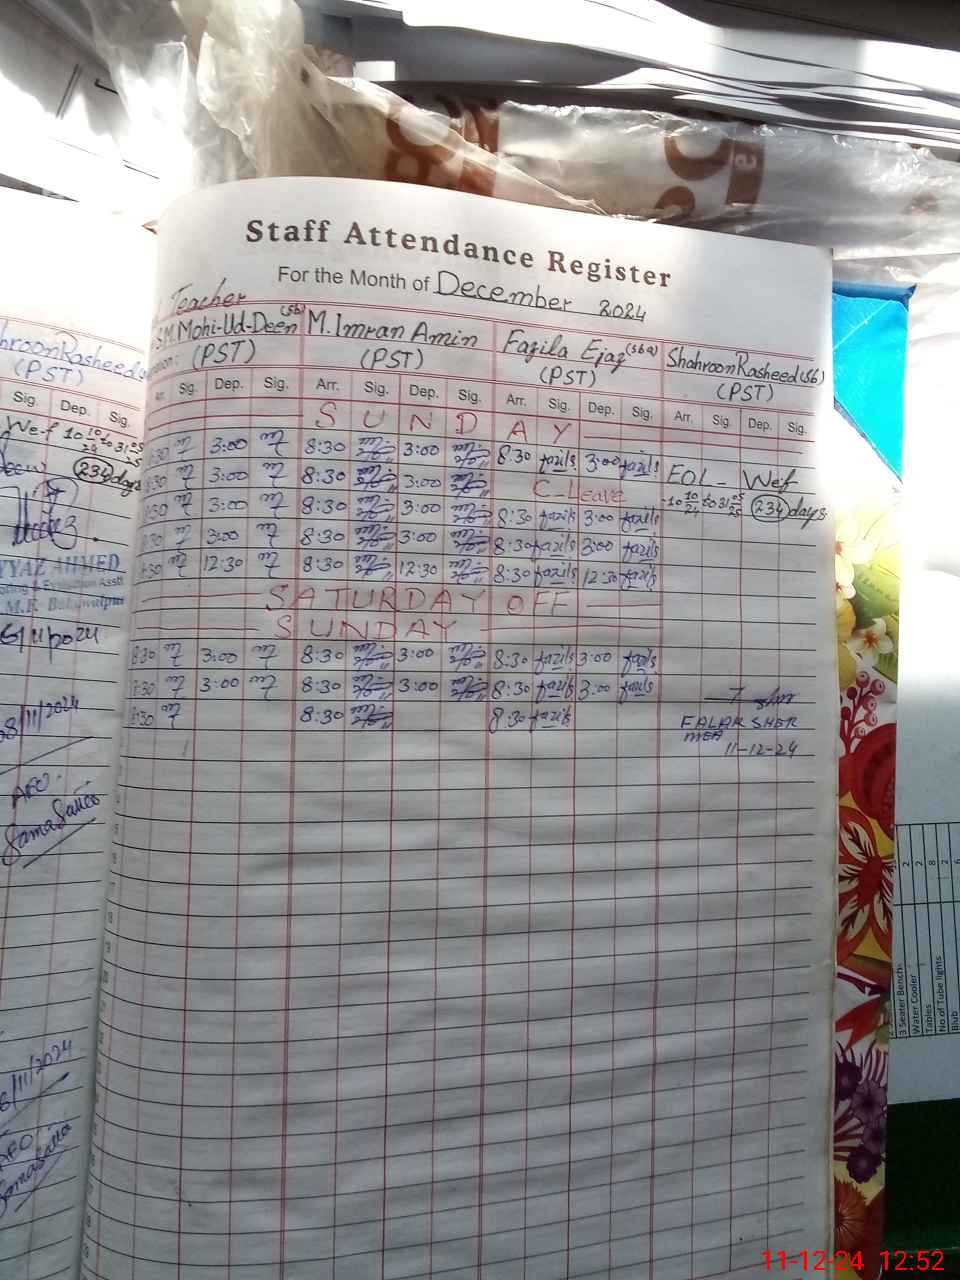 Staff Attendance Register
For the Month of December 2024
Teacher
S.M.Mohi-Ud-Deen (sb) M. Imran Amin Fazila Ejaz (sba) Shahroon Rasheed (sb)
(PST) (PST) (PST) (PST)
Arr. Sig. Dep. Sig. Arr. Sig. Dep. Sig. Arr. Sig. Dep. Sig. Arr. Sig. Dep. Sig.
S U N D A Y
8:30 3:00 8:30 3:00 8:30 fazila 3:00 fazila
8:30 3:00 8:30 3:00 C-Leave
8:30 3:00 8:30 3:00 8:30 fazila 3:00 fazila
8:30 3:00 8:30 3:00 8:30 fazila 3:00 fazila
8:30 12:30 8:30 12:30 8:30 fazila 12:30 fazila
EOL - Wef
10 10/24 to 31 05/25 (234) days
SATURDAY OFF
SUNDAY
8:30 3:00 8:30 3:00 8:30 fazila 3:00 fazila
8:30 3:00 8:30 3:00 8:30 fazila 3:00 fazila
8:30 8:30 8:30 fazila
FALAK SHER
MEA
11-12-24
hroon Rasheed
(PST)
Sig. Dep. Sig.
Wef 10 10/24 to 31 05/25
(234) days
YYAZ AHMED
Evaluation Asstt
Bahawalpur
6/11/2024
08/11/2024
AEO
Sama Sadia
6/11/2024
AEO
Sama Sadia
3 Seater Bench 2
Water Cooler 2
Tables 8
No of Tube lights 2
Blub 6
11-12-24 12:52